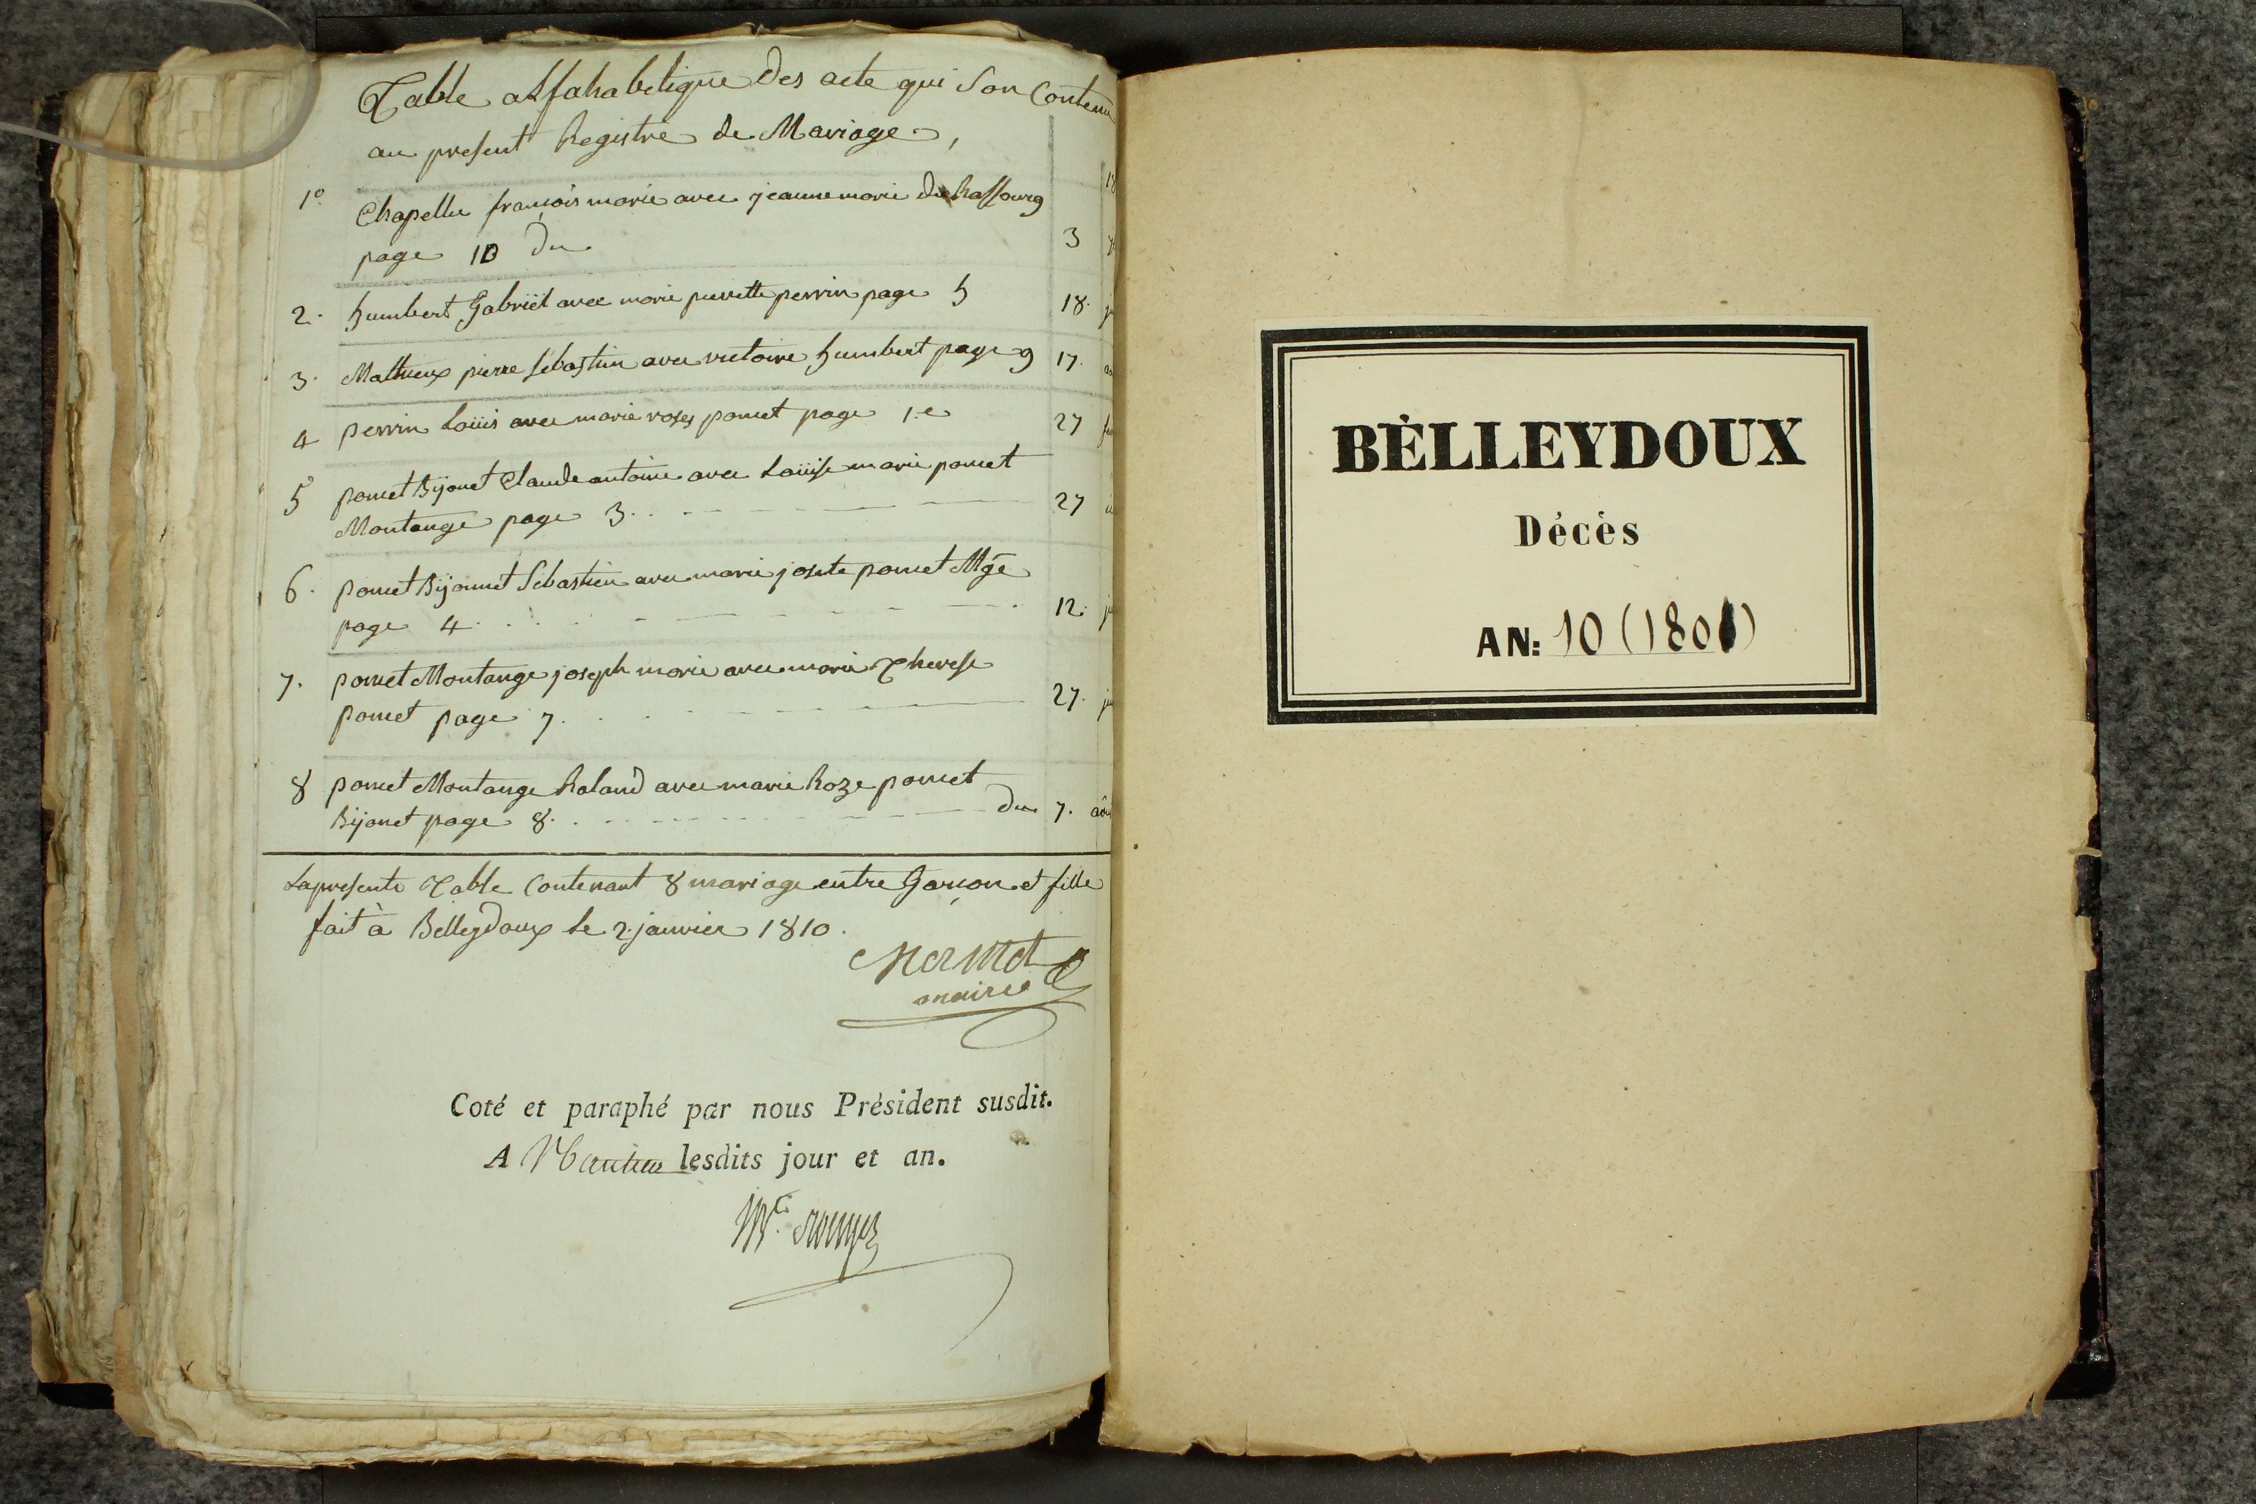 Table alfahabetique des acte qui son contenu
au present Registre de Mariage,
1º Chapellu françois marie avec jeanne marie
page 10 du 3
2. humbert Gabriël avec marie pierrette perrin page 5 18.
3. Mathieux pierre sebastien avec victoire humbert page 9 17.
4 perrin Loüis avec marie roses poncet page 1.e 27
5 poncet Bijonet Claude antoine avec Loüise marie poncet
Montange page 3. 27
6. poncet Bijonnet Sebastien avec marie josete poncet Mge
page 4. 12.
7. poncet Montange joseph marie avec marie Therese
poncet page 7. 27.
8 poncet Montange Roland avec marie Roze poncet
Bijonet page 8. du 7. aôu
La presente Table Contenant 8 mariage entre Garçon et fille
fait à Belleydoux le 2 janvier 1810.
Mermet
maire
Coté et paraphé par nous Président susdit.
A Nantua lesdits jour et an.
BÈLLEYDOUX
Décès
AN: 10 (1801)